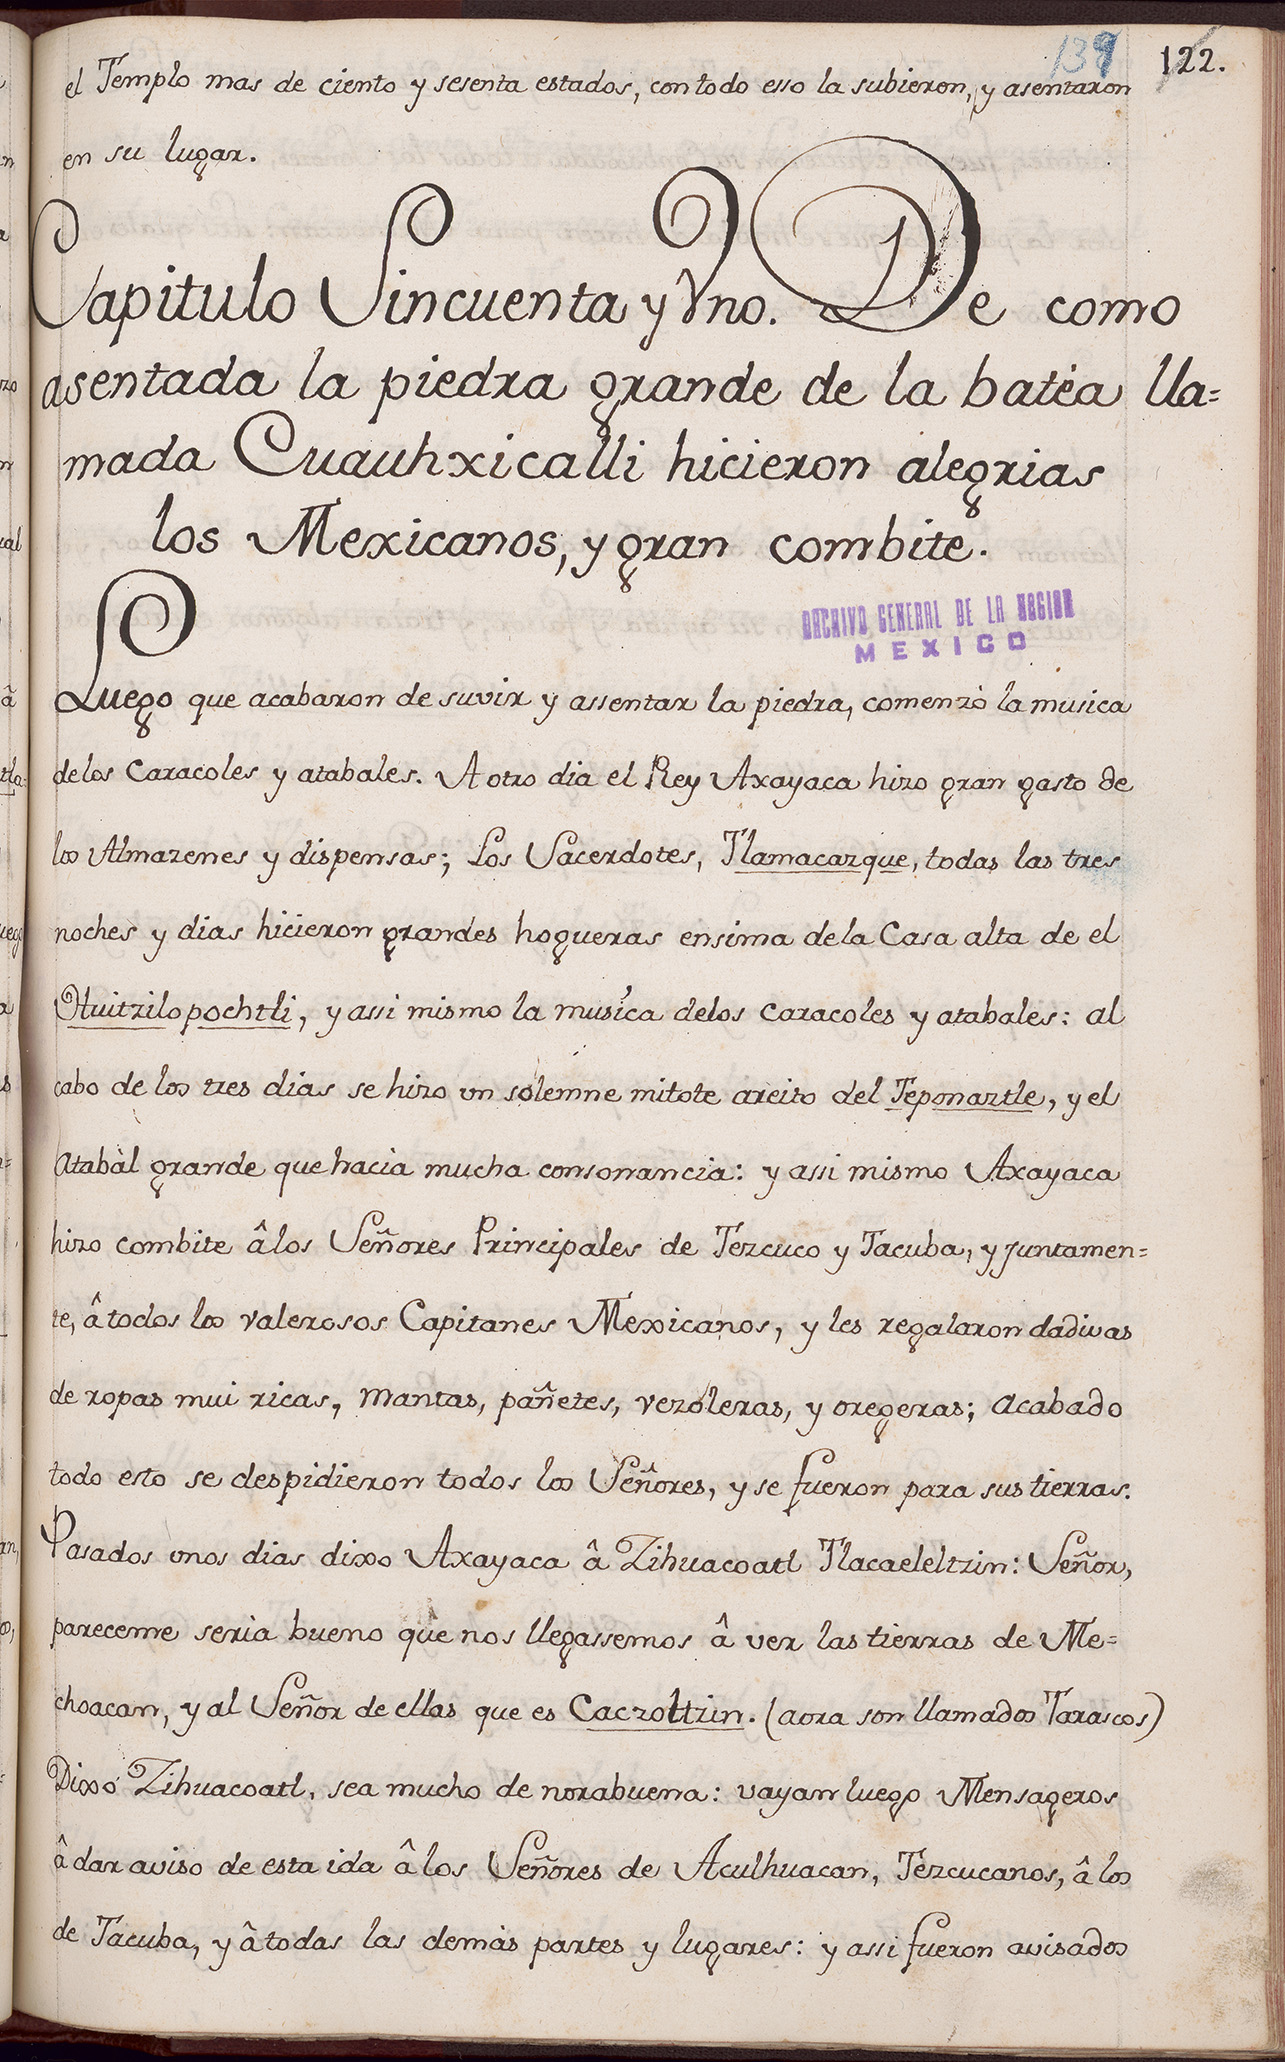 139 122.
el Templo mas de ciento y sesenta estados, con todo esso la subieron, y asentaron
en su lugar.
Capitulo Sincuenta y Vno. De como
asentada la piedra grande de la batéa lla=
mada Cuauhxicalli hicieron alegrias
los Mexicanos, y gran combite.
ARCHIVO GENERAL DE LA NACION
MEXICO
Luego que acabaron de suvir y assentar la piedra, comenzò la musica
de los Caracoles y atabales. A otro dia el Rey Axayaca hizo gran gasto de
los Almazenes y dispensas; Los Sacerdotes, Tlamacazque, todas las tres
noches y dias hicieron grandes hogueras ensima de la Casa alta de el
Huitzilopochtli, y assi mismo la musica de los caracoles y atabales: al
cabo de los tres dias se hizo un solemne mitote areito del Teponaztle, y el
Atabàl grande que hacia mucha consonancia: y assi mismo Axayaca
hizo combite â los Señores Principales de Tezcuco y Tacuba, y juntamen=
te, â todos los valerosos Capitanes Mexicanos, y les regalaron dadivas
de ropas mui ricas, mantas, pañetes, vezoleras, y oregeras; acabado
todo esto se despidieron todos los Señores, y se fueron para sus tierras.
Pasados unos dias dixo Axayaca â Zihuacoatl Tlacaeleltzin: Señor,
pareceme seria bueno que nos llegassemos â ver las tierras de Me=
choacan, y al Señor de ellas que es Caczoltzin. (aora son llamados Tarascos)
Dixo Zihuacoatl, sea mucho de norabuena: vayan luego Mensageros
â dar aviso de esta ida â los Señores de Aculhuacan, Tezcucanos, â los
de Tacuba, y â todas las demàs partes y lugares: y assi fueron avisados